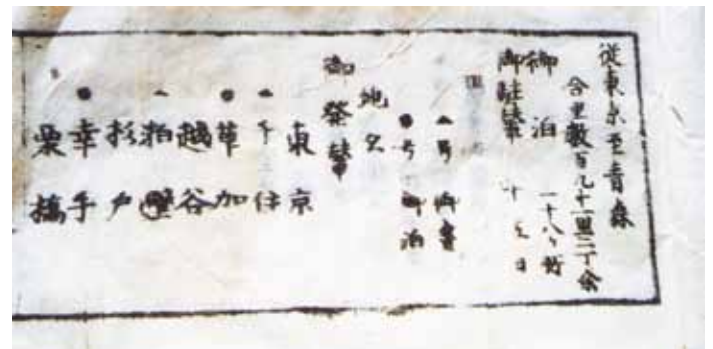 從東京至青森
合里數百九十一里二丁余
御泊 一十八ヶ所
御駐輦 十五日
▲号 御晝
●号 御泊
地名
御發輦
東京
▲千住
●草加
越谷
▲粕壁
杉戸
●幸手
栗橋